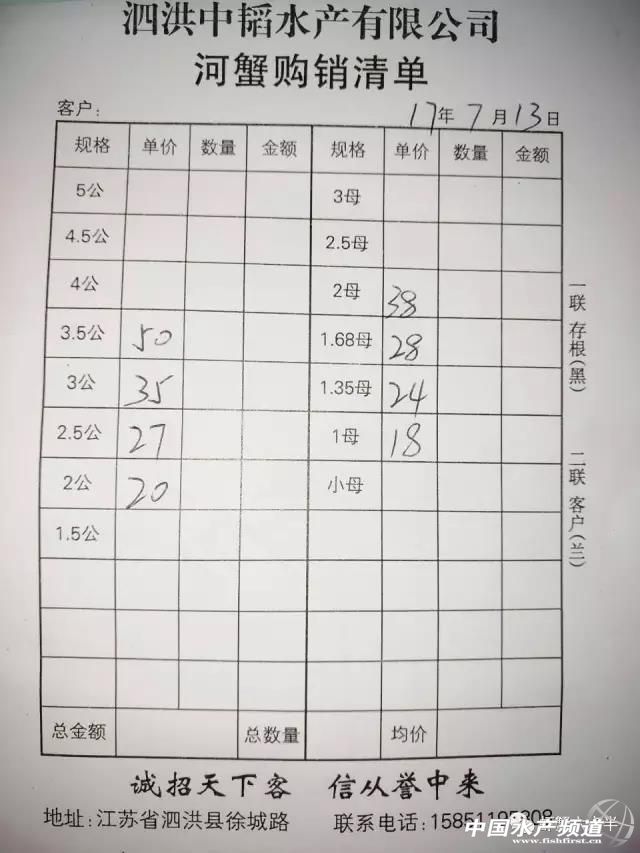 泗洪中韬水产有限公司
河蟹购销清单
客户: 17年7月13日
规格 单价 数量 金额 规格 单价 数量 金额
5公 3母
4.5公 2.5母
4公 2母 38
3.5公 50 1.68母 28
3公 35 1.35母 24
2.5公 27 1母 18
2公 20 小母
1.5公
总金额 总数量 均价
一联 存根(黑) 二联 客户(兰)
诚招天下客 信从誉中来
地址:江苏省泗洪县徐城路 联系电话:15851195808
中国水产频道
www.fishfirst.cn